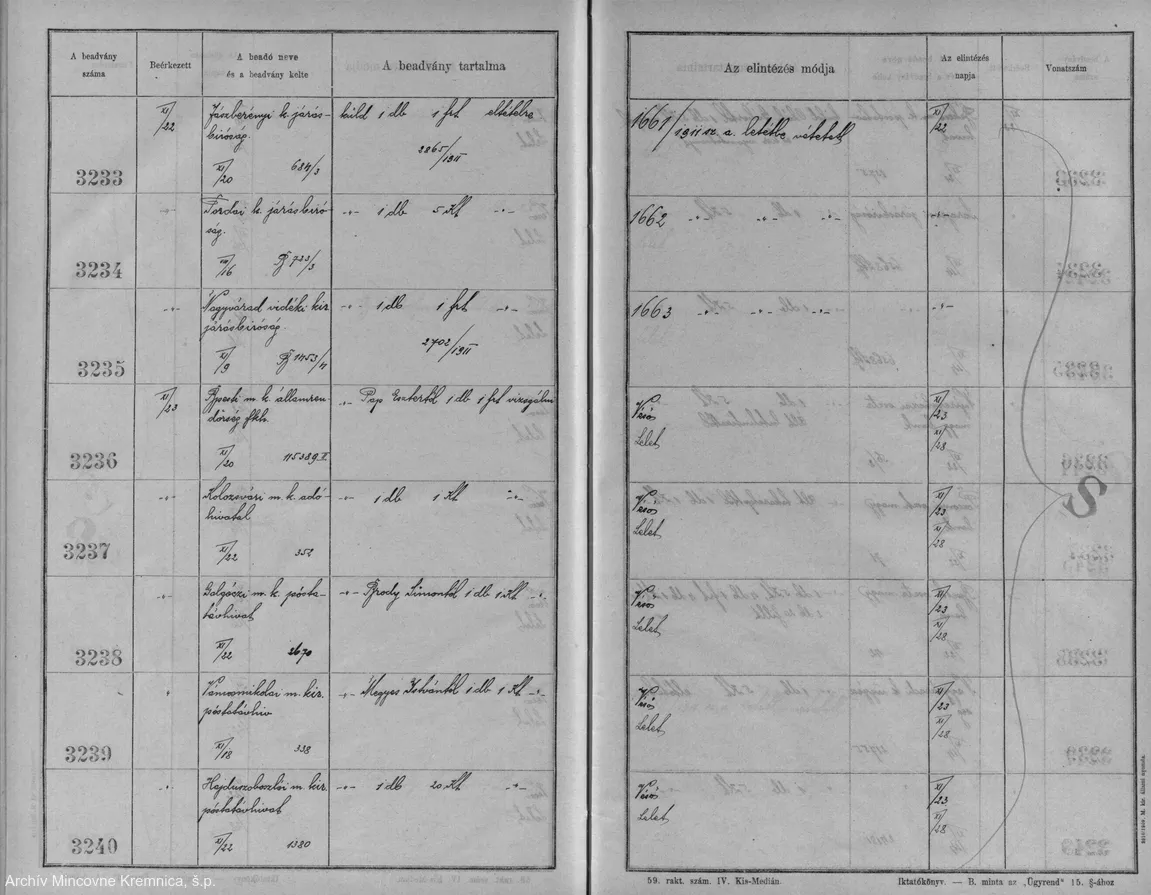 A beadvány száma
Beérkezett
A beadó neve és a beadvány kelte
A beadvány tartalma
Az elintézés módja
Az elintézés napja
Vonatszám
3233
XI/22
Jászberényi k. járás-
biróság.
XI/20 684/3
küld 1 db 1 frt eltételre
2865/1911
1661/1911 sz. a. letétbe vétetett
XI/22
3234
-"-
Tordai k. járásbiró-
ság.
B 723/3
-"- 1 db 5 Kt -"-
1662 -"- -"- -"-
-"-
3235
-"-
Nagyvárad vidéki kir.
járásbiróság.
XI/9 B 1453/4
-"- 1 db 1 frt -"-
2702/1911
1663 -"- -"- -"-
-"-
3236
XI/23
Bpesti m. k. államren-
dőrség fkh.
XI/20 115389
-"- Pap Esztertől 1 db 1 frt vizsgálni
Vésős
Lelet
XI/23
XI/28
3237
-"-
Kolozsvári m. k. adó-
hivatal
XI/22 352
-"- 1 db 1 Kt -"-
Vésős
Lelet
XI/23
XI/28
3238
-"-
Galgóczi m. k. pósta-
távhivat
XI/22 2670
-"- Brody Simontól 1 db 1 Kt -"-
Vésős
Lelet
XI/23
XI/28
3239
-"-
Vámosmikolai m. kir.
póstatávhiv
XI/18 338
-"- Megyes Istvántól 1 db 1 Kt -"-
Vésős
Lelet
XI/23
XI/28
3240
-"-
Hajduszoboszlói m. kir.
póstatávhivat
XI/22 1380
-"- 1 db 20 Kt -"-
Vésős
Lelet
XI/23
XI/28
59. rakt. szám. IV. Kis-Medián.
Iktatókönyv. — B. minta az „Ügyrend" 15. §-ához
Archív Mincovne Kremnica, š.p.